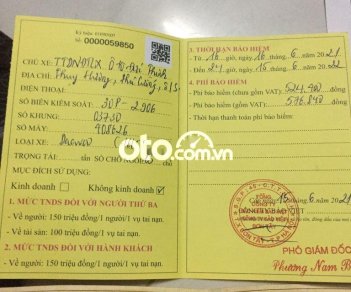 Số: 0000059850
CHỦ XE:
ĐỊA CHỈ:
ĐIỆN THOẠI:
BIỂN KIỂM SOÁT: 30P-2906
SỐ KHUNG: 03730
SỐ MÁY: 908626
LOẠI XE: Daewoo
TRỌNG TẢI: tấn SỐ CHỖ NGỒI: chỗ
MỤC ĐÍCH SỬ DỤNG:
Kinh doanh Không kinh doanh
1. MỨC TNDS ĐỐI VỚI NGƯỜI THỨ BA
- Về người: 150 triệu đồng/1 người/1 vụ tai nạn.
- Về tài sản: 100 triệu đồng/1 vụ tai nạn.
2. MỨC TNDS ĐỐI VỚI HÀNH KHÁCH
- Về người: 150 triệu đồng/1 người/1 vụ tai nạn.
3. THỜI HẠN BẢO HIỂM
- Từ 16 giờ, ngày 16 tháng 6 năm 2021
- Đến giờ, ngày 15 tháng 6 năm 2022
4. PHÍ BẢO HIỂM
- Phí bảo hiểm (chưa gồm VAT): 524.400 đồng
- Phí bảo hiểm (gồm VAT): 576.840 đồng
- Thời hạn thanh toán phí bảo hiểm:
oto.com.vn
PHÓ GIÁM ĐỐC
Phương Nam